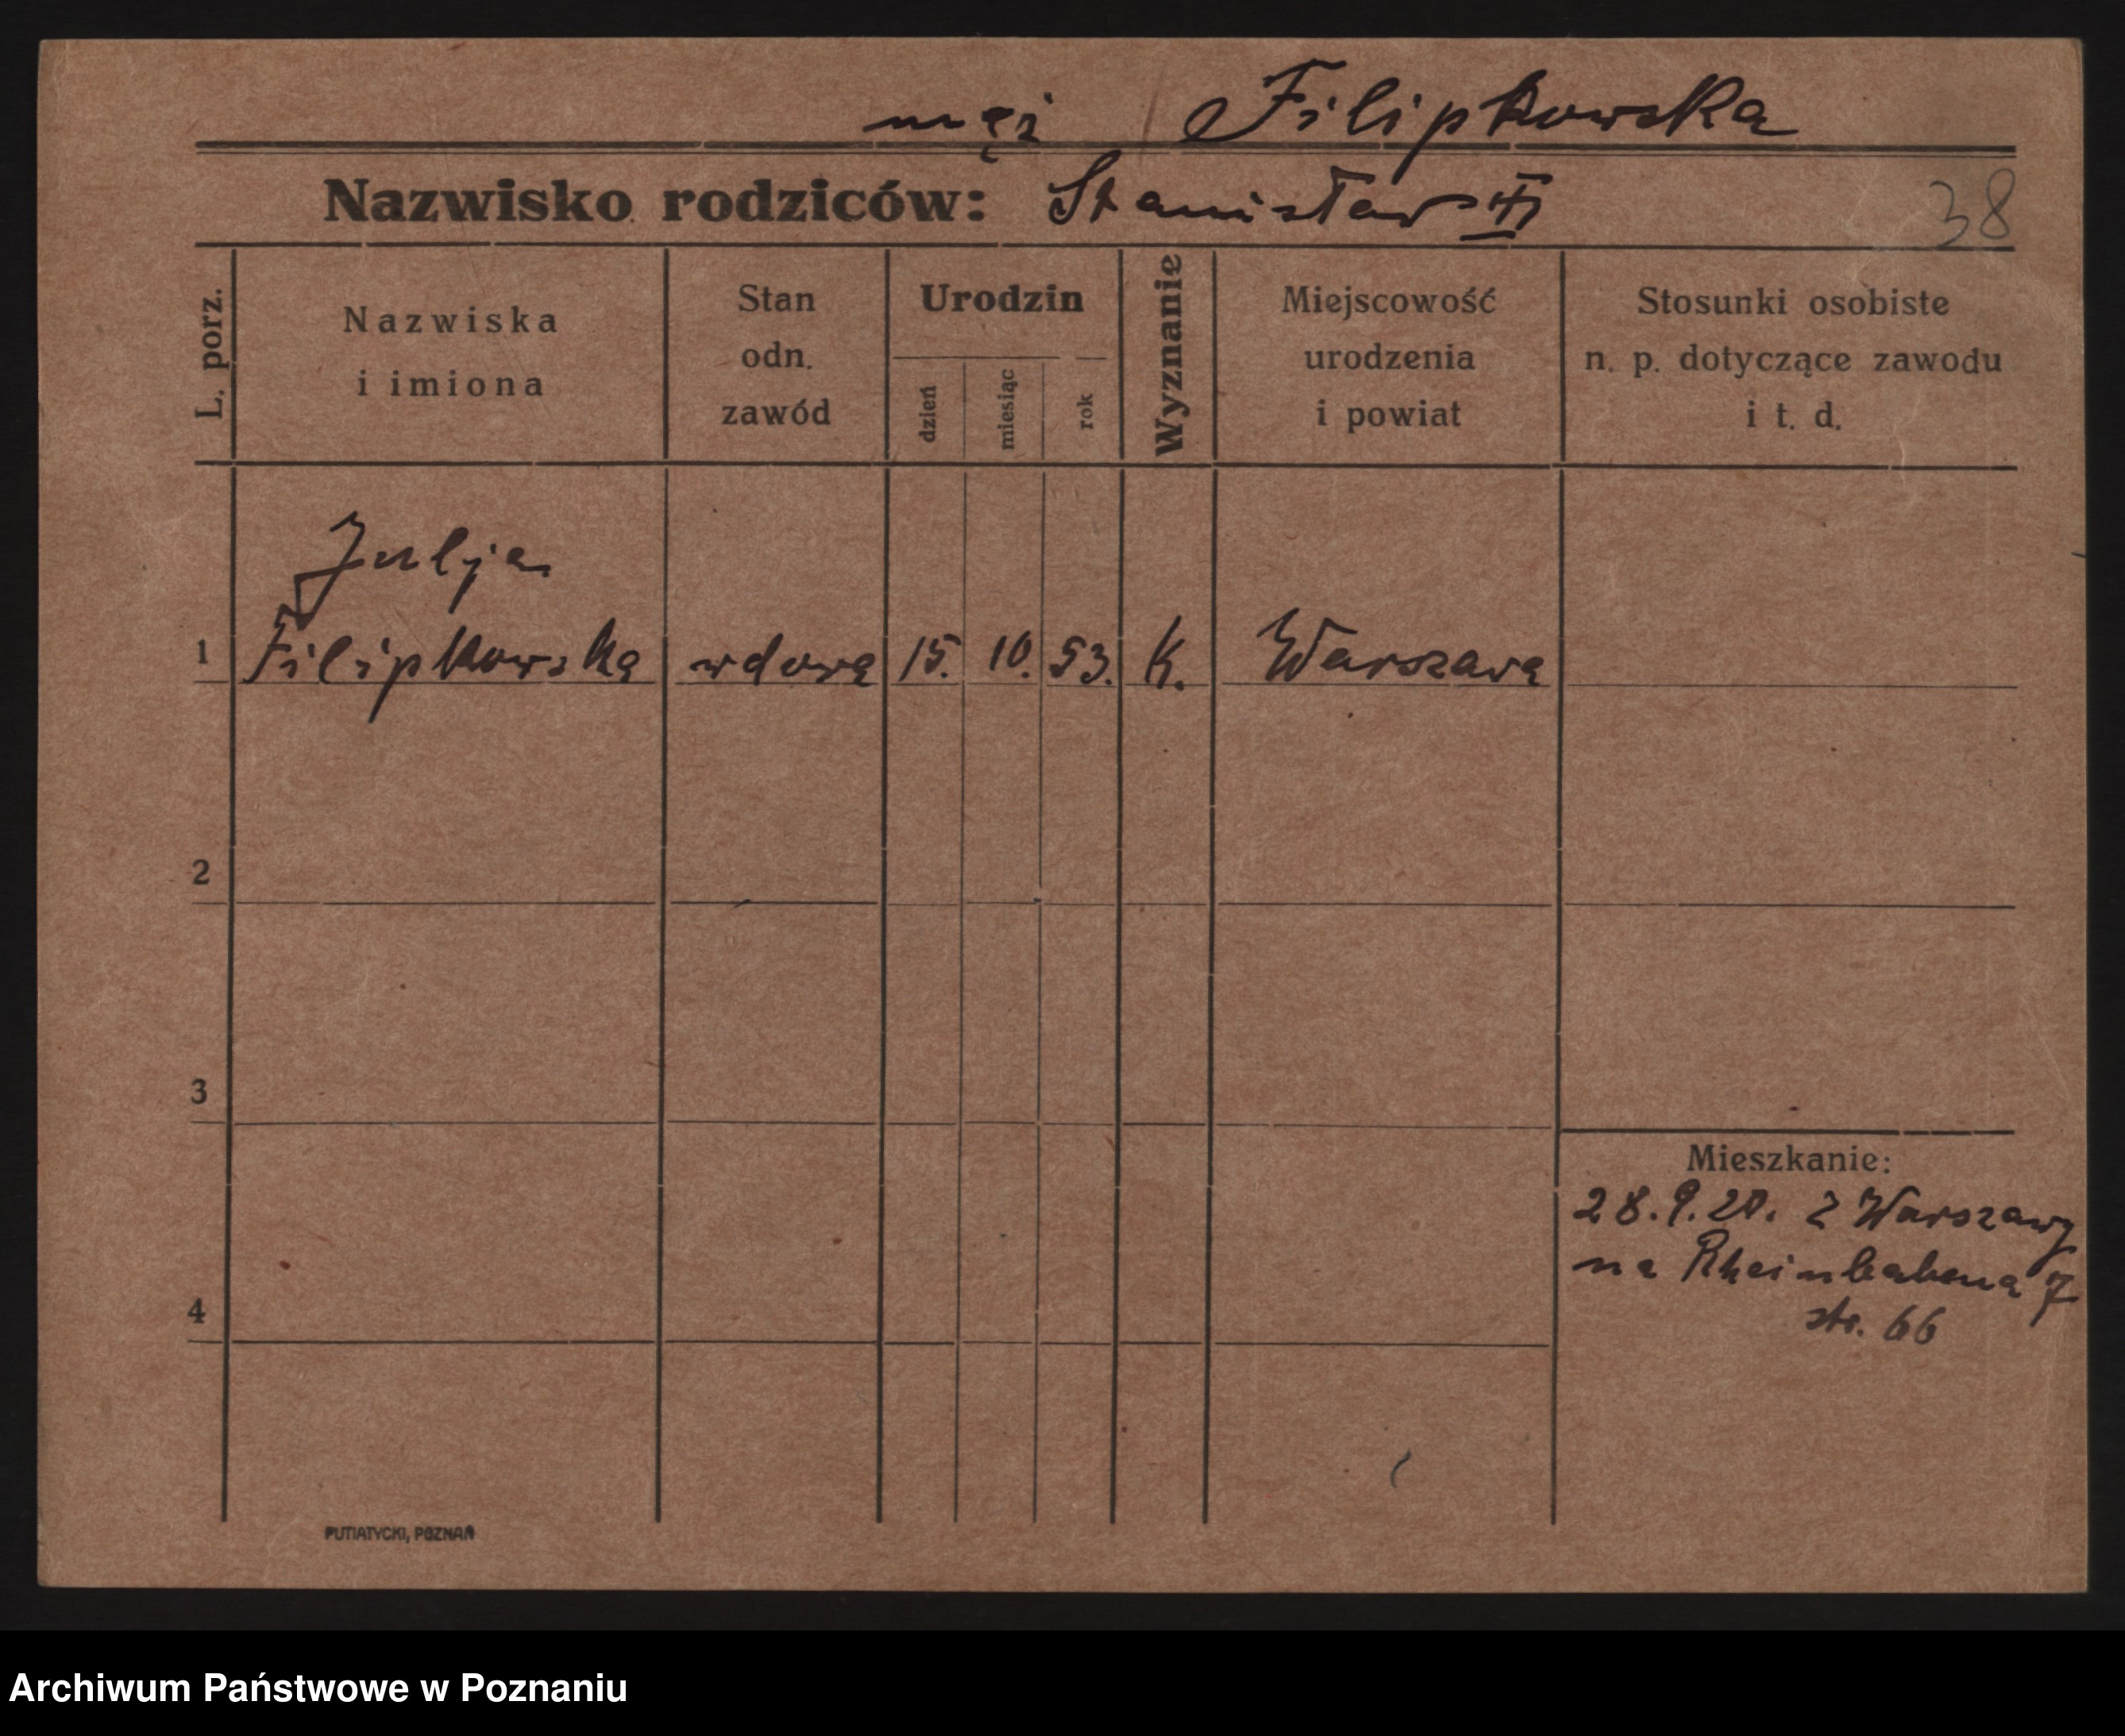 Filipkowska
mąż
Nazwisko rodziców: Stanisław
38
L. porz.
Nazwiska
i imiona
Stan
odn.
zawód
Urodzin
dzień
miesiąc
rok
Wyznanie
Miejscowość
urodzenia
i powiat
Stosunki osobiste
n. p. dotyczące zawodu
i t. d.
Julja
1 Filipkowska wdowa 15. 10. 53. K. Warszawa
2
3
4
Mieszkanie:
28.9.20. z Warszawy
na Rheinbabena 7
str. 66
PUTIATYCKI, POZNAŃ
Archiwum Państwowe w Poznaniu